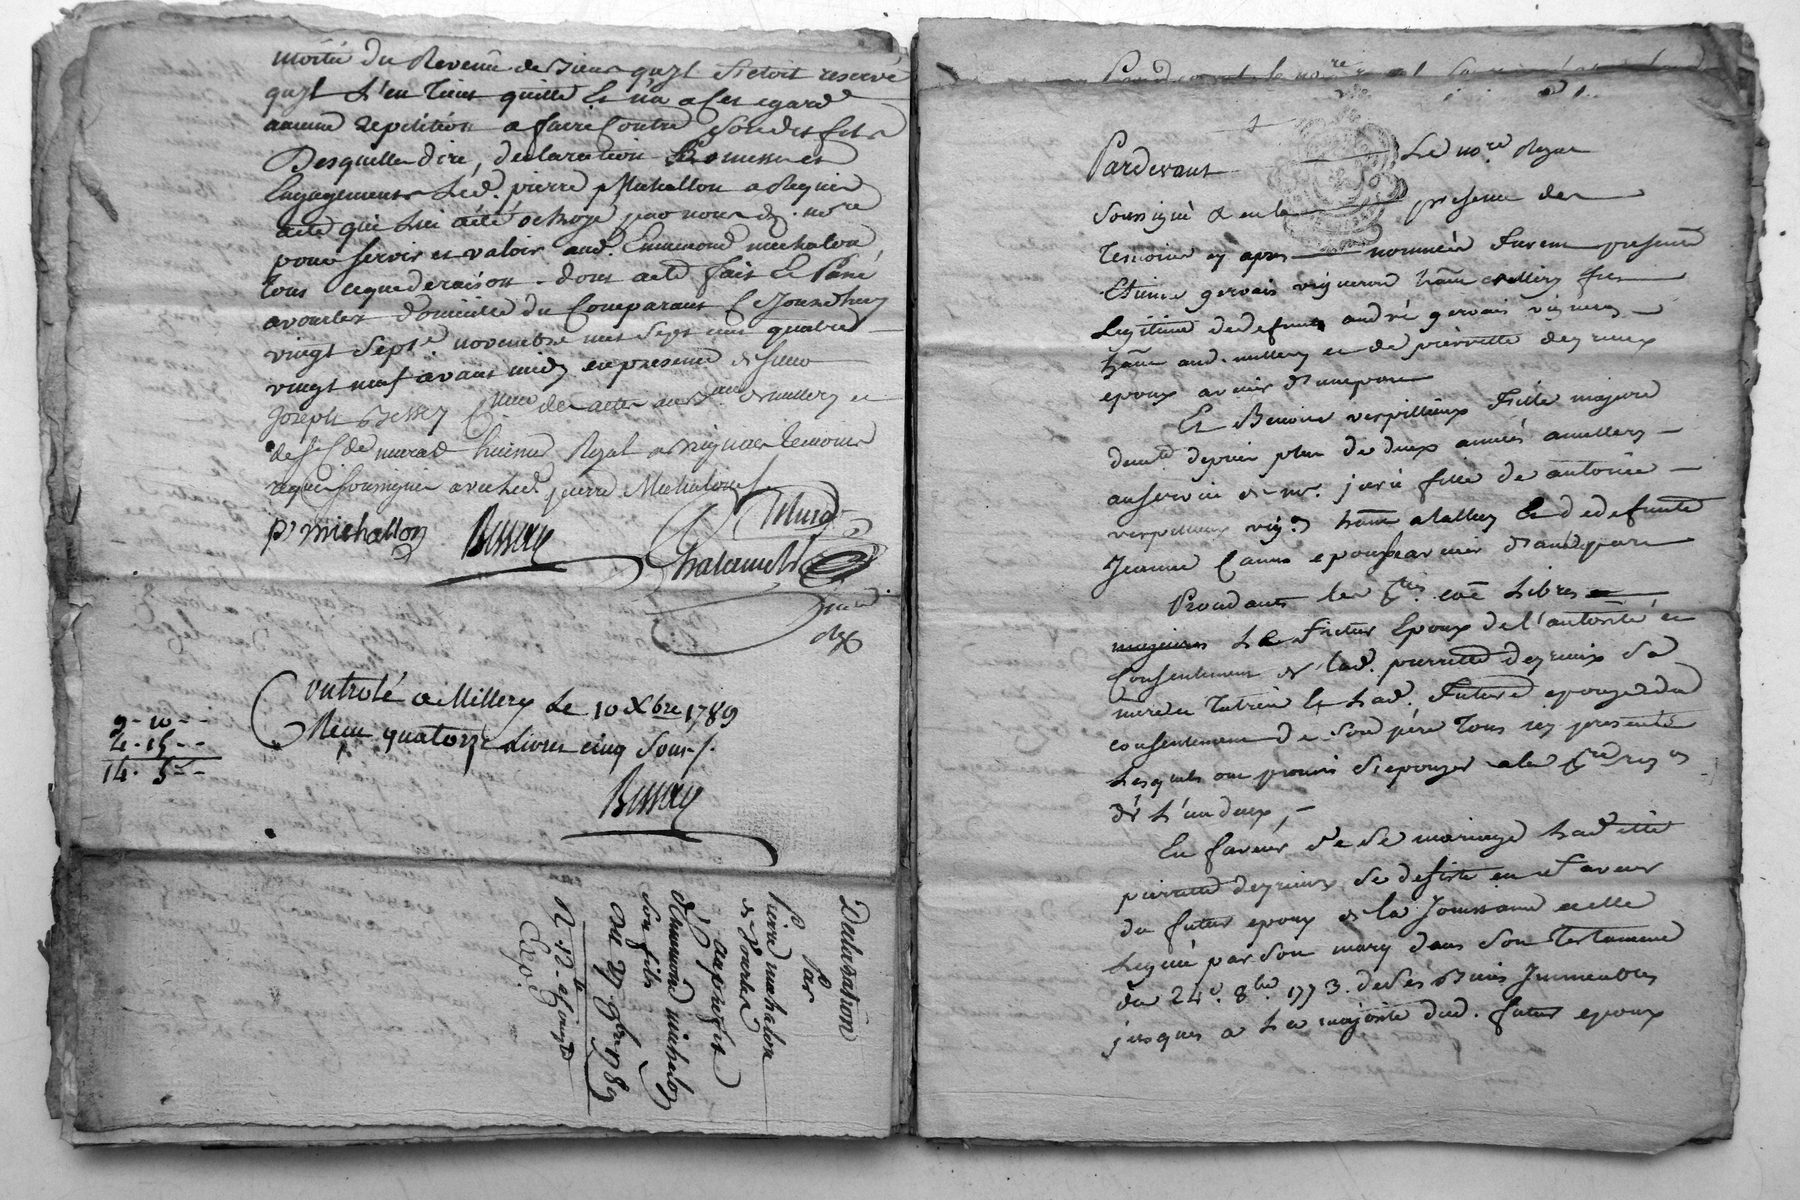 moitié du Revenu de Biens qu'jl s'etoit reservé
qu'jl s'en tient quitte Et n'a a cet egard
aucune repetition a faire Contre sondit fils
Desquelles dire, declaration Promesses et
Engagements led. pierre Michallon a Requis
acte qui lui a été octroyé par nous d. nore
pour servir et valoir aud. Ennemond michalon
tous ce que de raison. dont acte fait Et Passé
a vourles domicile du Comparant Cejourd'huy
vingt Sept novembre mil Sept cent quatre
vingt neuf avant midy en presence de sieur
Joseph Bessey des actes aud. Millery et
de de murard huissier Royal a vignes temoins
requis soussignés avec led. pierre Michalon
pr michallon Bessey
Chalumet
Contrôlé a Millery Le 10 Xbre 1789
Reçu quatorze Livres cinq Sous /.
9 - 10 - -
4 - 15 - -
14 - 5 - -
Bessey
Déclaration
Par
Pierre michalon
de vourles
au profit
d'Ennemond michalon
son fils
Du 27 9bre 1789
Exp.
Pardevant Le nore Royal
soussigné & en la presence des
temoins cy apres nommés Furent presents
Etienne gervais vigneron hãnt a Millery fils
Legitime de defunt andré gervais vigneron
hãnt aud. millery et de pierrette deyrieux
epoux avenir d'une part
Et Benoite verpillieux Fille majeure
demte depuis plus de deux années a millery
au service de mr. fille de antoine
verpillieux vign hãnt a talluy Et de defunte
Jeanne Epouse avenir d'autre part
Procedants les pties comme Libres
majeures Le Futur Epoux de l'autorité et
Consentement de lad. pierrette deyrieux Sa
mere et tutrice Et Lad. Future epouse du
consentement de Son pere tous icy presents
Lesquels ont promis s'epouser a la pre req on
de L'un deux,
En faveur de ce mariage Ladite
pierrette deyrieux se desiste en Faveur
du futur epoux de la Jouissance a elle
Leguée par Son mary dans Son testament
du 24e. 8bre. 1773. de ses Biens Immeubles
jusques a La majorité dud. futur epoux